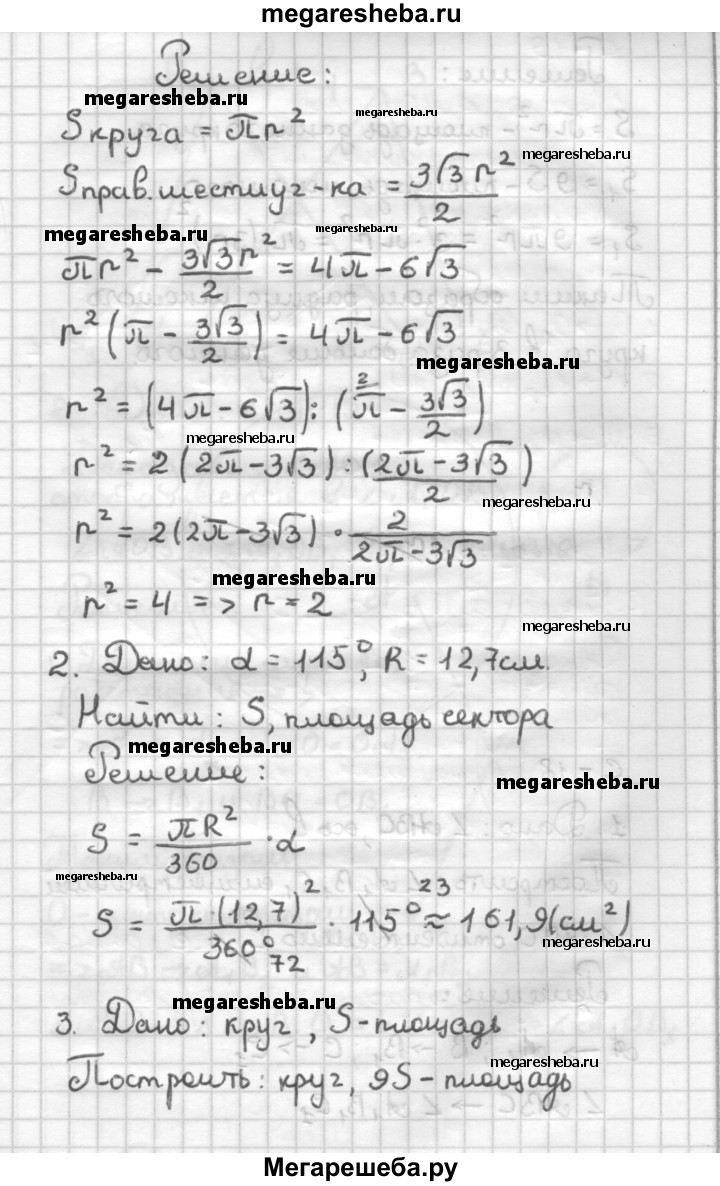 megaresheba.ru
Решение:
megaresheba.ru
S круга = πr²
megaresheba.ru
S прав. шестиуг-ка = 3√3 r² / 2
megaresheba.ru
megaresheba.ru
πr² - 3√3r² / 2 = 4π - 6√3
r² (π - 3√3 / 2) = 4π - 6√3
megaresheba.ru
r² = (4π - 6√3) : (²π - 3√3 / 2)
megaresheba.ru
r² = 2 (2π - 3√3) : (2π - 3√3 / 2)
megaresheba.ru
r² = 2 (2π - 3√3) · 2 / 2π - 3√3
megaresheba.ru
r² = 4 => r = 2
megaresheba.ru
2. Дано: α = 115°, R = 12,7см.
Найти: S, площадь сектора
megaresheba.ru
Решение:
megaresheba.ru
S = πR² / 360 · α
megaresheba.ru
S = π · (12,7)² / 360° 72 · 115° 23 ≈ 161,9(см²)
megaresheba.ru
megaresheba.ru
3. Дано: круг, S - площадь
megaresheba.ru
Построить: круг, 9S - площадь
Мегарешеба.ру